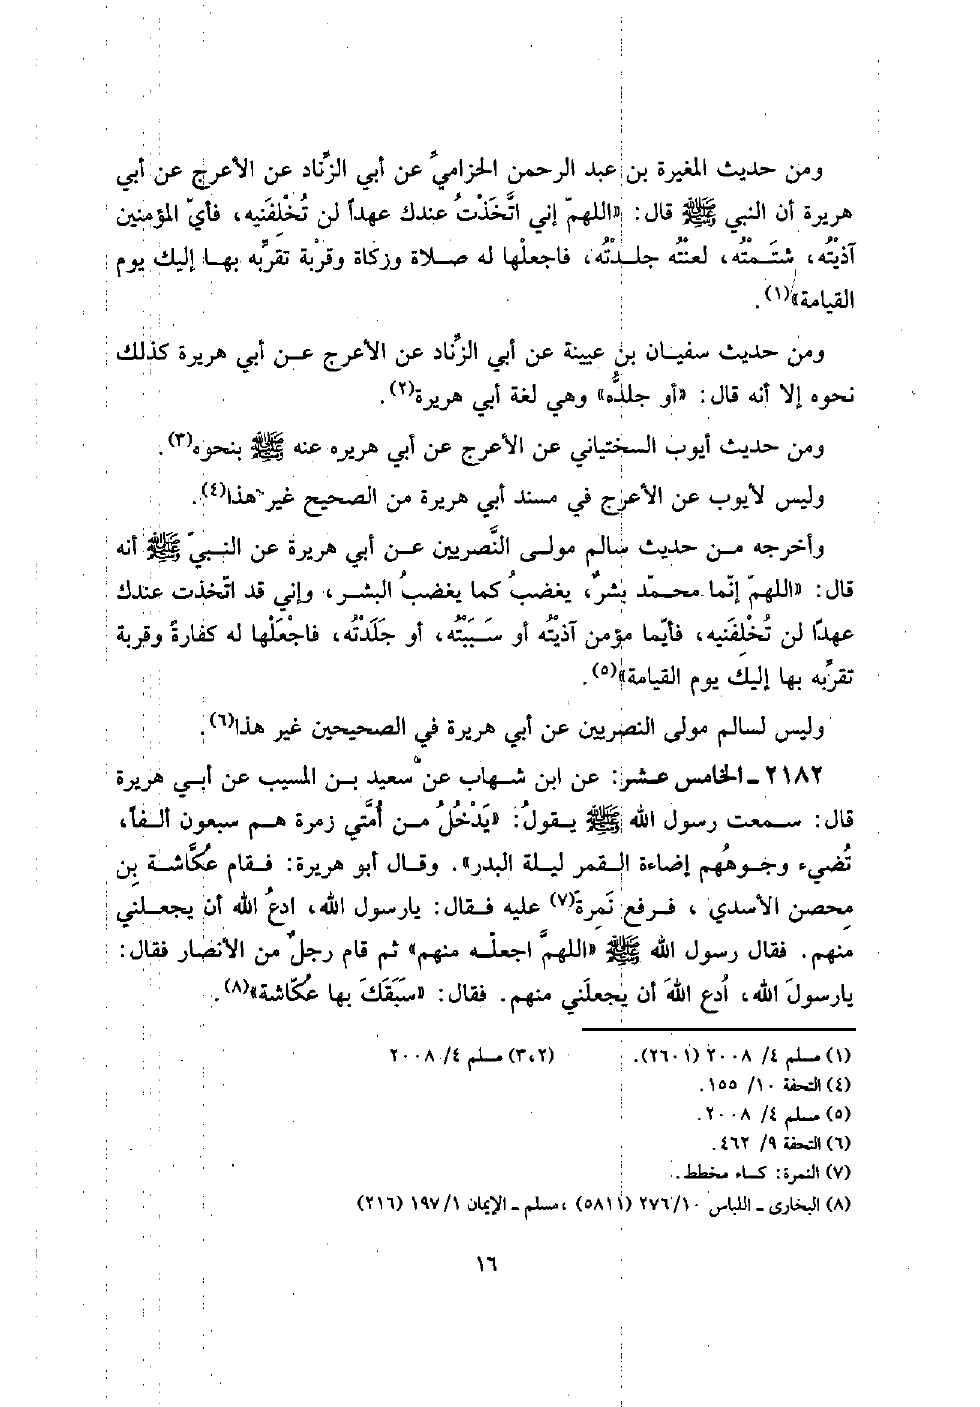 ومن حديث المغيرة بن عبد الرحمن الحزاميّ عن أبي الزِّناد عن الأعرج عن أبي
هريرة أن النبي ﷺ قال: «اللهمّ إني اتَّخَذْتُ عندك عهداً لن تُخْلِفَنيه، فأيّ المؤمنين
آذيْتُه، شتَـمْتُه، لعنتُه جلـدتُه، فاجعلْها له صلاة وزكاة وقرْبة تقربِّه بها إليك يوم
القيامة»(١).
ومن حديث سفيان بن عيينة عن أبي الزِّناد عن الأعرج عن أبي هريرة كذلك
نحوه إلا أنه قال: «أو جلدُّه» وهي لغة أبي هريرة(٢).
ومن حديث أيوب السختياني عن الأعرج عن أبي هريره عنه ﷺ بنحوه(٣).
وليس لأيوب عن الأعرج في مسند أبي هريرة من الصحيح غير هذا(٤).
وأخرجه من حديث سالم مولى النَّصريين عن أبي هريرة عن النبيّ ﷺ أنه
قال: «اللهمّ إنّما محمّد بشرٌ، يغضبُ كما يغضبُ البشر، وإني قد اتّخذت عندك
عهدًا لن تُخْلِفَنيه، فأيّما مؤمن آذيْتُه أو سَبَبَتُه، أو جَلَدْتُه، فاجْعَلْها له كفارةً وقربة
تقرِّبه بها إليك يوم القيامة»(٥).
وليس لسالم مولى النصريين عن أبي هريرة في الصحيحين غير هذا(٦).
٢١٨٢ ـ الخامس عشر: عن ابن شهاب عن سعيد بن المسيب عن أبي هريرة
قال: سمعت رسول الله ﷺ يقولُ: «يَدْخُلُ من أُمَّتي زمرة هم سبعون ألفاً،
تُضيء وجوهُهم إضاءة القمر ليلة البدر». وقال أبو هريرة: فقام عُكَّاشة بن
محصن الأسدي ، فرفع نَمِرةً(٧) عليه فقال: يارسول الله، ادعُ الله أن يجعلني
منهم. فقال رسول الله ﷺ «اللهمَّ اجعلْه منهم» ثم قام رجلٌ من الأنصار فقال:
يارسولَ الله، اُدع اللهَ أن يجعلَني منهم. فقال: «سَبَقَكَ بها عُكّاشة»(٨).
(١) مسلم ٤/ ٢٠٠٨ (٢٦٠١). (٢،٣) مسلم ٤/ ٢٠٠٨
(٤) التحفة ١٠/ ١٥٥.
(٥) مسلم ٤/ ٢٠٠٨.
(٦) التحفة ٩/ ٤٦٢.
(٧) النمرة: كساء مخطط.
(٨) البخارى ـ اللباس ١٠/ ٢٧٦ (٥٨١١) ، مسلم ـ الإيمان ١/ ١٩٧ (٢١٦)
١٦